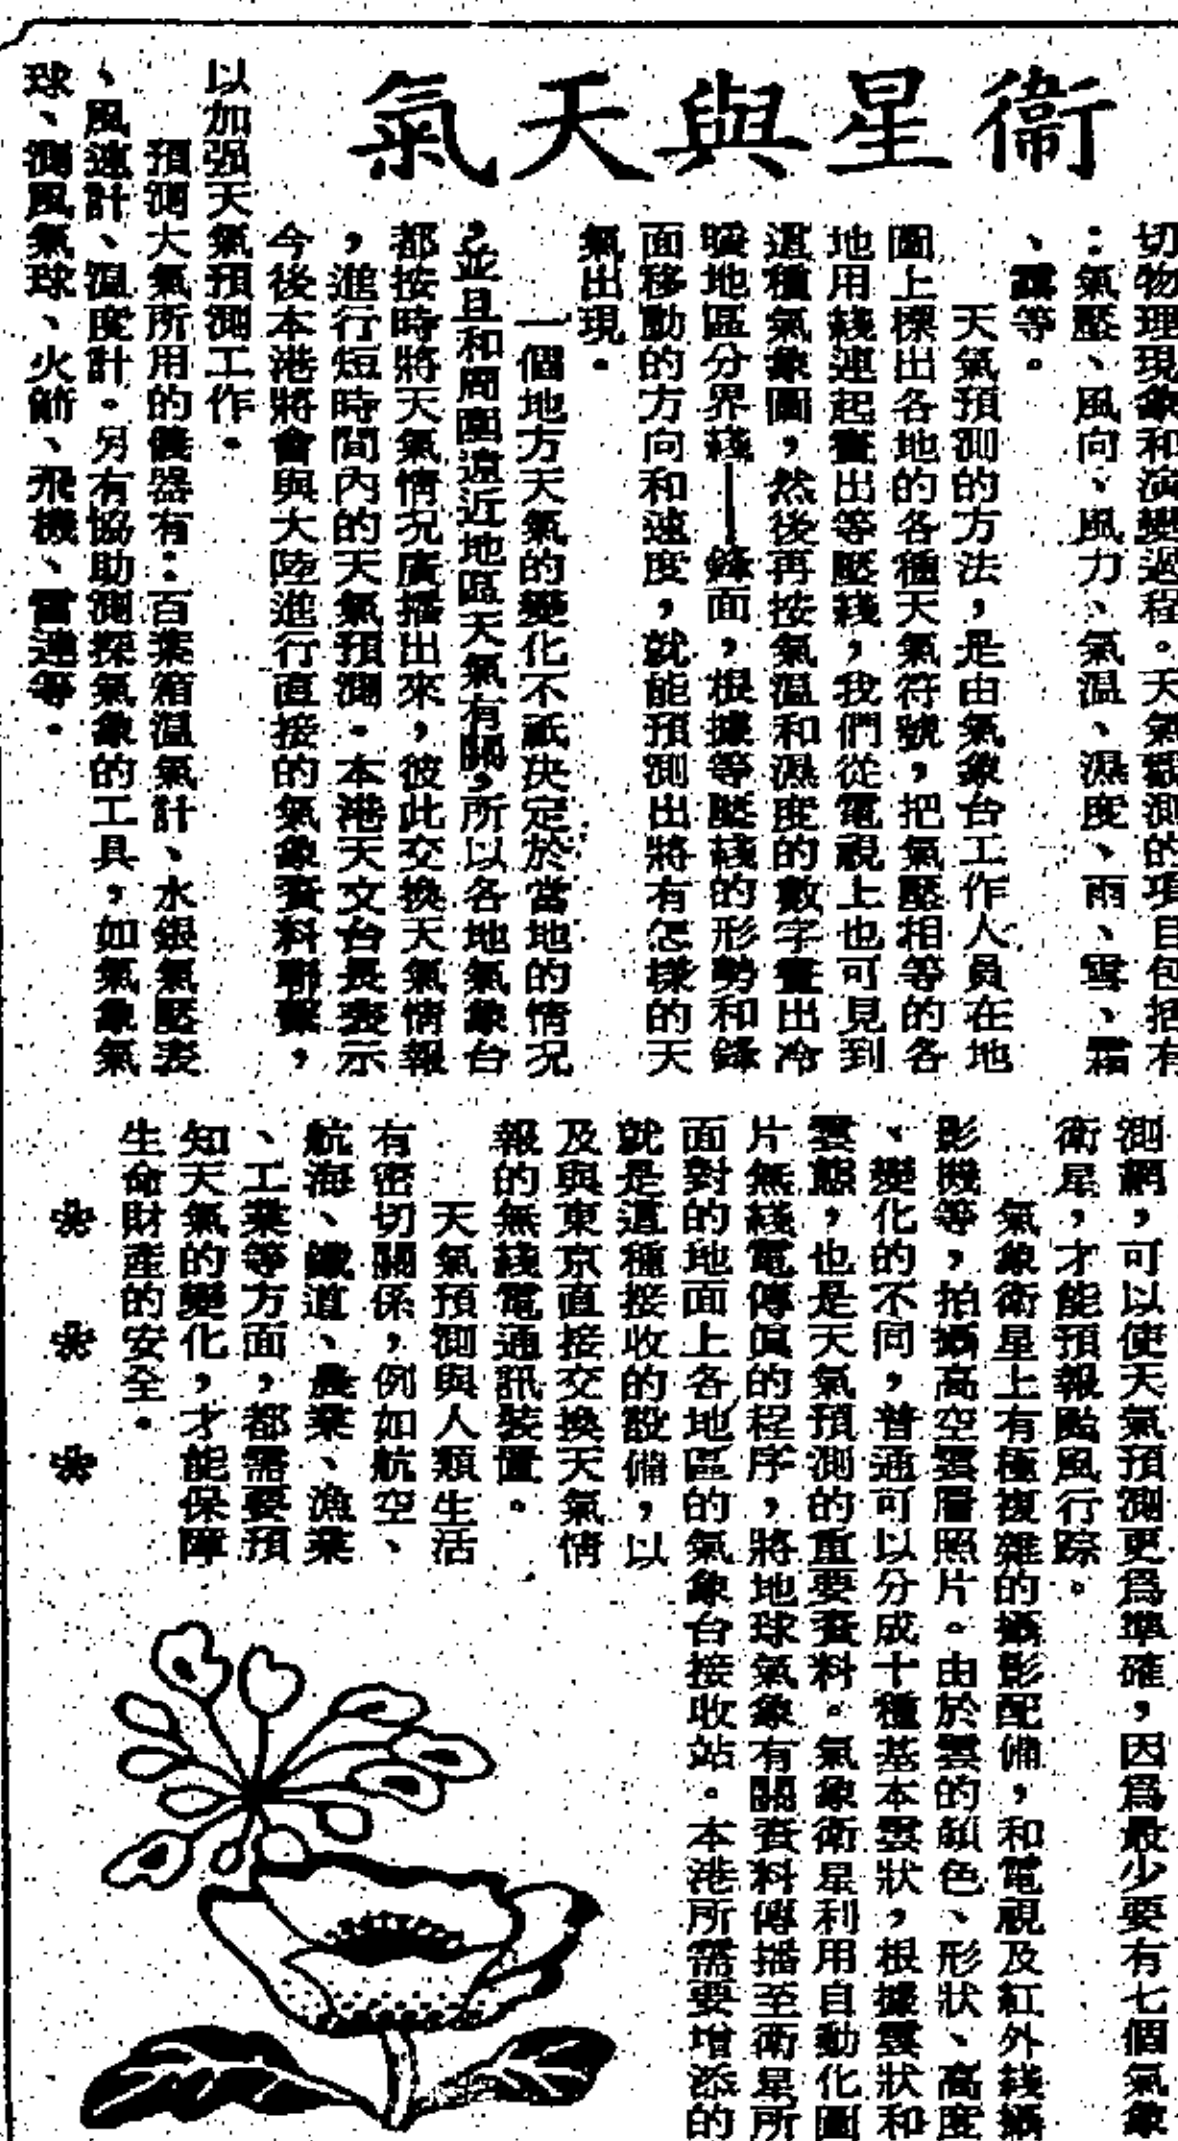 衞星與天氣
切物理現象和演變過程。天氣預測的項目包括有
：氣壓、風向、風力、氣溫、濕度、雨、雪、霜
、霧等。
天氣預測的方法，是由氣象台工作人員在地
圖上標出各地的各種天氣符號，把氣壓相等的各
地用綫連起畫出等壓綫，我們從電視上也可見到
這種氣象圖，然後再按氣溫和濕度的數字畫出冷
暖地區分界綫——鋒面，根據等壓綫的形勢和鋒
面移動的方向和速度，就能預測出將有怎樣的天
氣出現。
一個地方天氣的變化不祇決定於當地的情況
，並且和周圍遠近地區天氣有關，所以各地氣象台
都按時將天氣情況廣播出來，彼此交換天氣情報
，進行短時間內的天氣預測。本港天文台長表示
今後本港將會與大陸進行直接的氣象資料聯繫，
以加强天氣預測工作。
預測大氣所用的儀器有：百葉箱溫氣計、水銀氣壓表
、風速計、溫度計。另有協助測探氣象的工具，如氣象氣
球、測風氣球、火箭、飛機、雷達等。
測網，可以使天氣預測更爲準確，因爲最少要有七個氣象
衛星，才能預報颱風行踪。
氣象衛星上有極複雜的攝影配備，和電視及紅外綫攝
影機等，拍攝高空雲層照片。由於雲的顏色、形狀、高度
、變化的不同，普通可以分成十種基本雲狀，根據雲狀和
雲態，也是天氣預測的重要資料。氣象衛星利用自動化圖
片無綫電傳眞的程序，將地球氣象有關資料傳播至衛星所
面對的地面上各地區的氣象台接收站。本港所需要增添的
就是這種接收的設備，以
及與東京直接交換天氣情
報的無綫電通訊裝置。
天氣預測與人類生活
有密切關係，例如航空、
航海、鐵道、農業、漁業
、工業等方面，都需要預
知天氣的變化，才能保障
生命財產的安全。